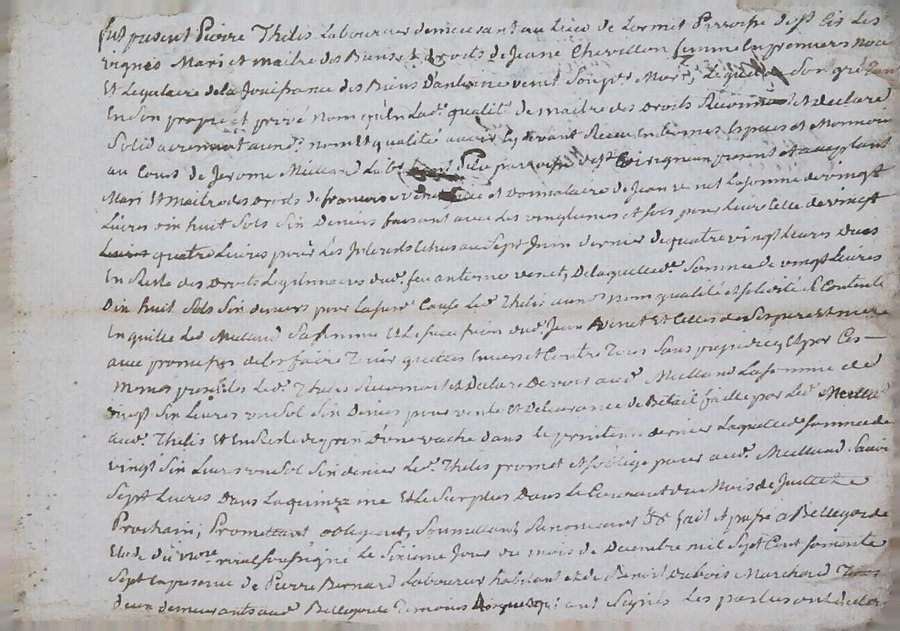 fut present Pierre Thelis Laboureur demeurant au Lieu de Lormet Parroisse de st Cir Les
vignes Mari et maitre des Biens & droits de Jeane Chevillon femme En premiers noce
Et Legataire de la Jouissance des Biens D'antoine venet Son pr Mary, Lequel de Son gré
En Son propre et privé nom qu'En Lad. qualité de maitre des Droits Reconnu Et declaré
Solidairement aud. nom Et qualité avoir cy devant Receu En bonnes Especes et Monnoie
au Cours de Jerome Millard Lab. parroisse de st present et acceptant
Mari Et maitre des Droits de francoise venet et Donnataire de Jean venet La somme de vingt
Livres dix huit Sols Six Deniers faisant avec Les vingt et six pour Celle de vingt
quatre Livres pour Les Interets Echus au Sept Juin dernier de quatre vingt Livres dues
En Reste des Droits Legitimaires dud. feu antoine venet, De laquelle d. Somme de vingt Livres
Dix huit Sols Six deniers pour La susd. Cause Led. Thelis aux d. nom qualité et solidité Se Contente
En quitte Led. Millard Sa femme Et Le Jean venet Et Celles de Ses pere et mere
avec promesse de Les faire Tenir quittes Envers et Contre Tous Sans prejudice, Et par Ces
Mêmes presentes Led. Thelis Reconnoit Et Declare Devoir aud. Millard La somme de
vingt Six Livres un Sol Six Deniers pour vente Et Delivrance de Betail faitte par Led. Millard
aud. Thelis Et En Reste du prix D'une vache Dans le printems dernier Laquelle d. somme de
vingt Six Livres un Sol Six denier Led. Thelis promet et s'oblige payer aud. Millard Savoir
Sept Livres Dans La quinzaine Et Le Surplus Dans Le Courant du Mois de Juillet
Prochain, Promettant, obligeant, Soumettant, Renonceant &c. fait et passé à Bellegarde
Etude du nore. royal Soussigné Le Sixieme Jour du mois de Decembre mil Sept Cent soixante
Sept En presence de Pierre Bernard Laboureur habitant et de Benoit Dubois Marchand Tous
Deux demeurants aud. Bellegarde Temoins Requis qui ont Signés Les parties ont declaré